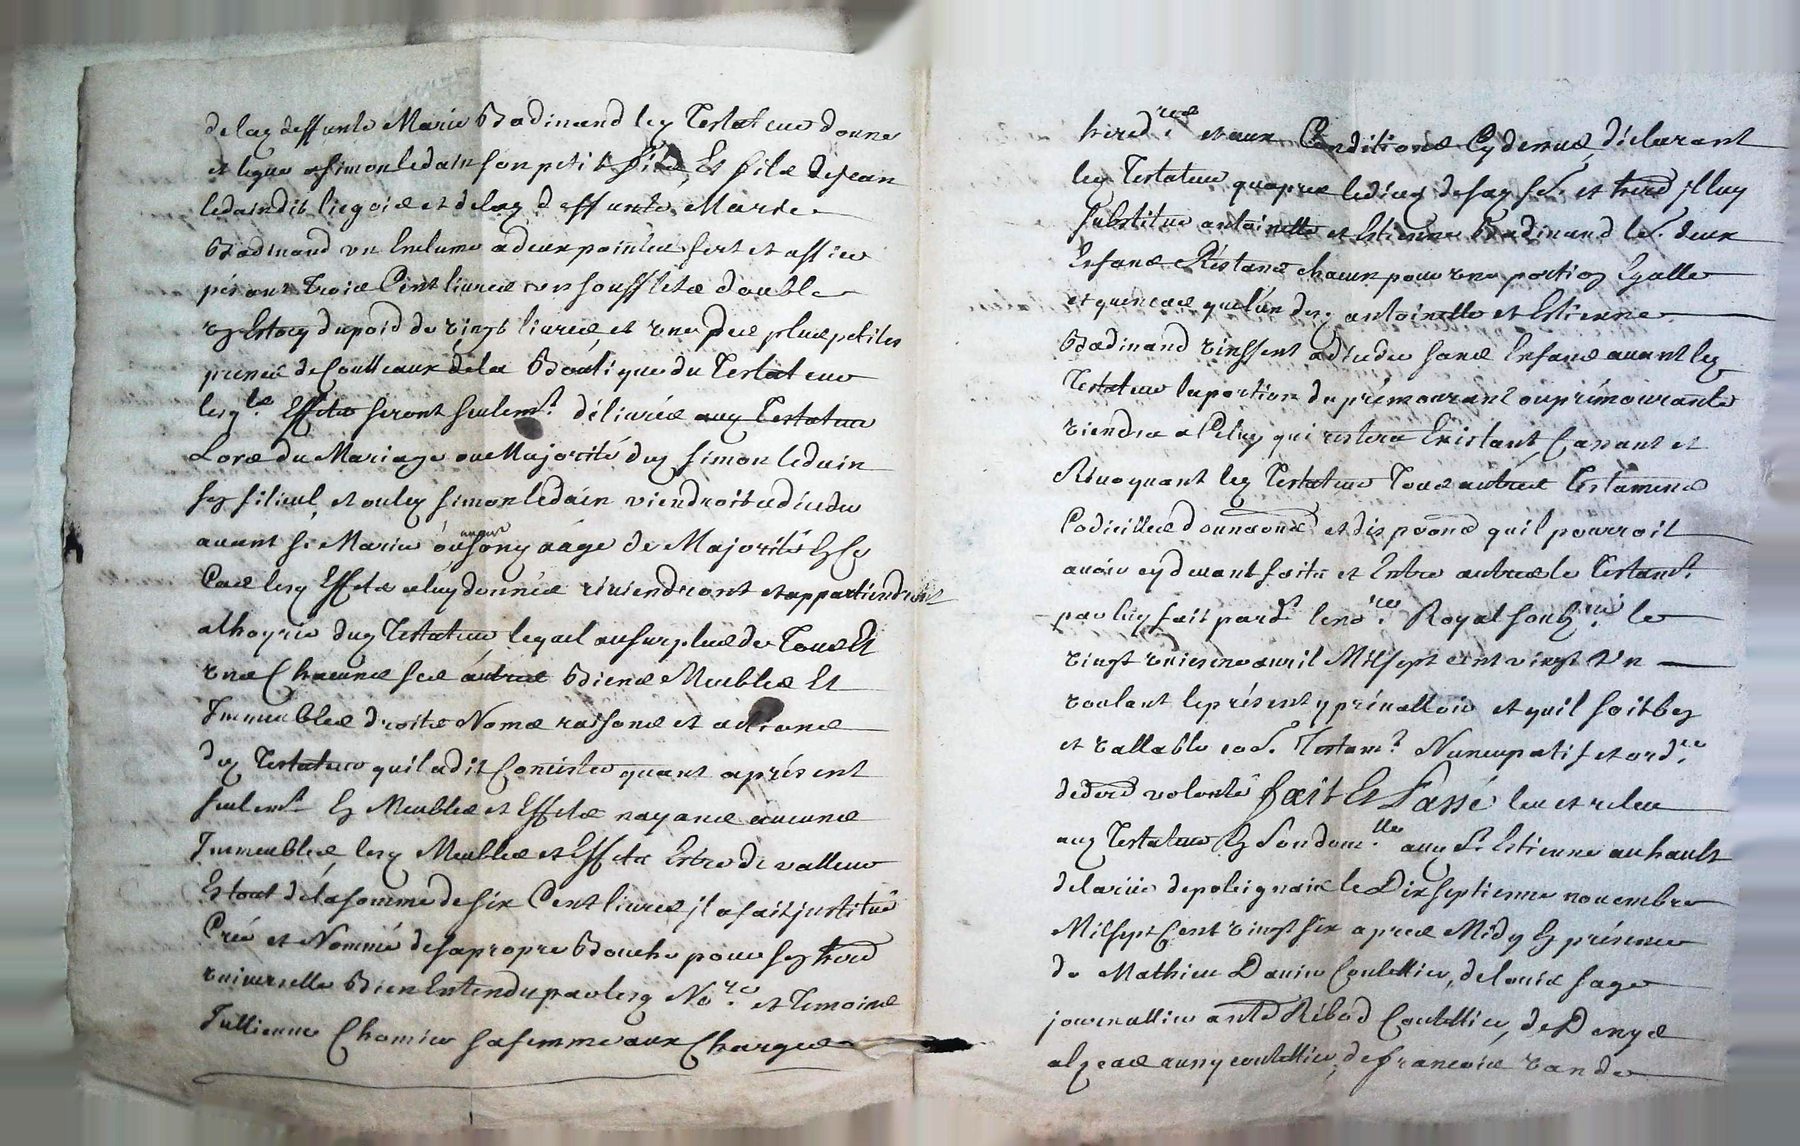 delad deffunte Marie Badinand led Testateur donne
et legue a Simon ledain son petit fils, Et fils de Jean
ledain dit liegois et delad deffunte Marie
Badinand un Enclume a deux pointes fort et assier
pésant Trois Cent livres un soufflets double
un Estocq du poid de vingt livres et une des plus petites
de Coutteaux de la Boutique du Testateur
lesqls Effets seront seulemt délivrés aud Testateur
Lors du Mariage ou Majorité dud Simon ledain
son filieul, et ou led Simon ledain viendroit a décéder
avant se Marier ou son age de Majorité En ce
Cas lesd Effets a luy donnés reviendront et appartiendront
a lhoyrie dud Testateur lequel au surplus de Tous Et
uns Chacuns ses autres Biens Meubles Et
Immeubles droits Noms raisons et actions
dud Testateur quil a dit Consister quant aprésent
seulemt En Meubles et Effets nayant aucuns
Immeubles lesd Meubles et Effets Estre de valleur
En tout de la somme de six Cent livres il a fait justitué
Créé et Nommé de sa propre Bouche pour son herd
universelle Bien Entendu par lesd Nore et Temoins
Jullienne Chomier sa femme aux Charges
heredres et aux Conditions Cydessus déclarant
led Testateur quapres le déces de sad fe et herd Il luy
substitue antoinette et Estienne Badinand les deux
Enfans Réstans chacun pour une portion Egalle
et quencas que lun desd antoinette et Estienne
Badinand vinssent a décéder sans Enfans avant led
Testateur la portion du prémourant ou prémourante
viendra a Celuy qui restera Existant Cassant et
Révoquant led Testateur Tous autres Testamens
Codicilles donnaons et dispoons quil pourroit
avoir cy devant faits et Entre autres le Testamt
par luy fait pardt le nore Royal soubzné le
vingt unieme avril Mil sept cent vingt Un
voulant le présent y prévalloir et quil soit bon
et vallable co Testamt Nuncupatif et ordre
de derd volonté fait Et Passé leu et releu
aud Testateur En son domlle aud St Estienne au hault
de la rüe de poleignais le Dix septieme novembre
Mil sept Cent vingt six apres Midy En présence
de Mathieu Danier Coutellier, de louis sage
journallier antd Ribod Coutellier, de Denys
aussy coutellier, de françois